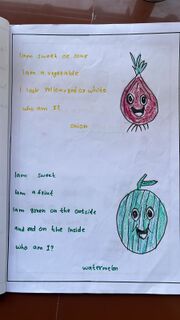 Iam sweet or sour
I am a vegetable
I look yellow, red or white
who am I?
onion
Iam sweet
Iam a fruit
Iam green on the outside
and red on the inside
who am I?
watermelon